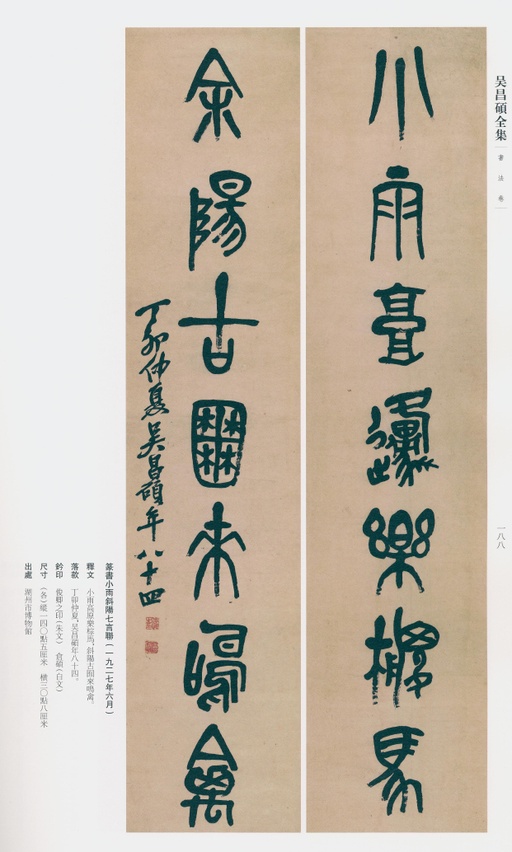 吴昌碩全集
書法卷
一八八
小雨高原樂椶馬
余陽古囿來鳴禽
丁卯仲夏吴昌碩年八十四
篆書小雨斜陽七言聯(一九二七年六月)
釋文 小雨高原樂棕馬,斜陽古囿來鳴禽。
落款 丁卯仲夏,吴昌碩年八十四。
鈐印 俊卿之印(朱文) 倉碩(白文)
尺寸 (各)縱一四〇點五厘米 橫三〇點八厘米
出處 湖州市博物館